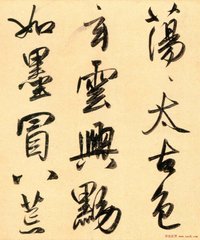 蕩、太古色
玄雲興
如墨冒八荒